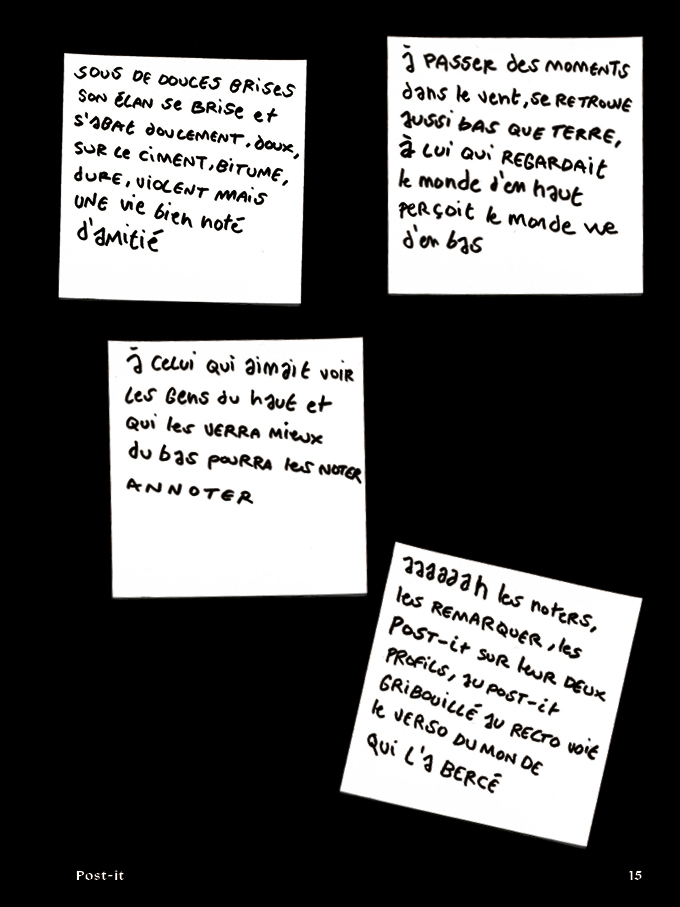 SOUS DE DOUCES BRISES
SON ÉLAN SE BRISE et
S'ABAT DOUCEMENT, DOUX,
SUR LE CIMENT, BITUME,
DURE, VIOLENT MAIS
UNE vie bien noté
d'amitié
à PASSER des MOMENTS
dans le vent, se RETROUVE
AUSSI BAS QUE TERRE,
à LUI QUI REGARDAIT
le monde d'en haut
PERÇOIT le monde vue
d'en bas
à celui qui aimait voir
les Gens du haut et
qui les VERRA mieux
du bas pourra les NOTER
ANNOTER
aaaaaah les noters,
les REMARQUER, les
POST-it SUR leur DEUX
PROFILS, au POST-it
GRIBOUILLÉ AU RECTO voit
le VERSO DU MONDE
qui L'A BERCÉ
Post-it
15